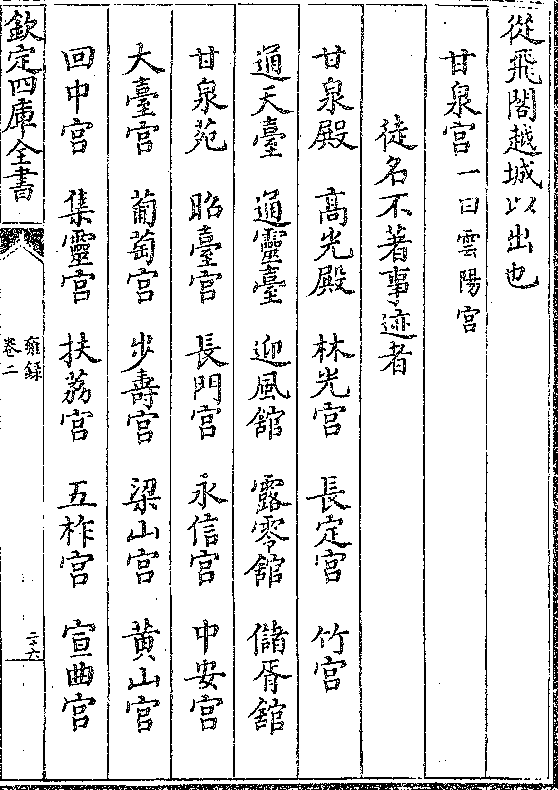 從飛閣越城以出也
甘泉宫一曰雲陽宫
徒名不著事迹者
甘泉殿 高光殿 林光宫 長定宫 竹宫
通天臺 通靈臺 迎風館 露零館 儲胥館
甘泉苑 昭臺宫 長門宫 永信宫 中安宫
大臺宫 葡萄宫 步壽宫 梁山宫 黄山宫
回中宫 集靈宫 扶荔宫 五柞宫 宣曲宫
欽定四庫全書
雍録
卷二
二十六